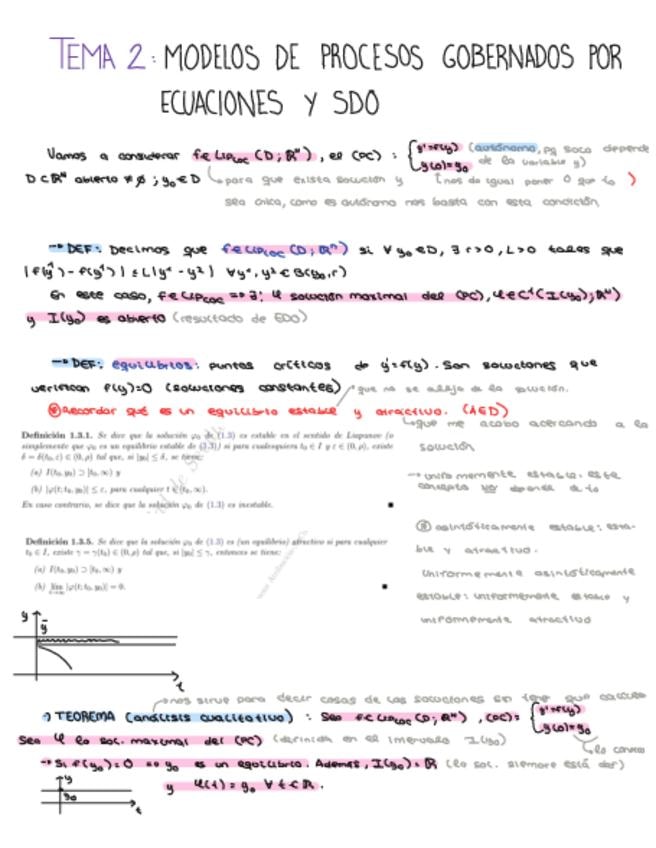 TEMA 2: MODELOS DE PROCESOS GOBERNADOS POR
ECUACIONES Y SDO
Vamos a considerar f ∈ Lip_loc (D; ℝⁿ), el (PC) : { y'=f(y) (autónomo, pq solo depende
y(0)=y₀ de la variable y)
D ⊂ ℝⁿ abierto ≠ ∅ ; y₀ ∈ D para que exista solución y nos da igual poner 0 que t₀ )
sea única, como es autónomo nos basta con esta condición
→ DEF: Decimos que f ∈ Lip_loc (D; ℝⁿ) si ∀ y₀ ∈ D, ∃ r>0, L>0 tales que
|f(y¹) - f(y²)| ≤ L|y¹ - y²| ∀ y¹, y² ∈ B(y₀, r)
En este caso, f ∈ Lip_loc => ∃! φ solución maximal del (PC), φ ∈ C¹(I(y₀); ℝⁿ)
y I(y₀) es abierto (resultado de EDO)
→ DEF: equilibrios: puntos críticos de y'=f(y). Son soluciones que
verifican f(y)=0 (soluciones constantes) que no se aleja de la solución.
⊛ Recordar qué es un equilibrio estable y atractivo. (AED)
que me acabo acercando a la
solución
Definición 1.3.1. Se dice que la solución φ₀ de (1.3) es estable en el sentido de Liapunov (o
simplemente que φ₀ es un equilibrio estable de (1.3)) si para cualesquiera t₀ ∈ I y ε ∈ (0, ρ), existe
δ = δ(t₀, ε) ∈ (0, ρ) tal que, si |y₀| ≤ δ, se tiene:
(a) I(t₀, y₀) ⊃ [t₀, ∞) y
(b) |φ(t; t₀, y₀)| ≤ ε, para cualquier t ∈ [t₀, ∞).
En caso contrario, se dice que la solución φ₀ de (1.3) es inestable.
→ uniformemente estable: este
concepto no depende de t₀
Definición 1.3.5. Se dice que la solución φ₀ de (1.3) es (un equilibrio) atractivo si para cualquier
t₀ ∈ I, existe γ = γ(t₀) ∈ (0, ρ) tal que, si |y₀| ≤ γ, entonces se tiene:
(a) I(t₀, y₀) ⊃ [t₀, ∞) y
(b) lim t→∞ |φ(t; t₀, y₀)| = 0.
⊛ asintóticamente estable: esta-
ble y atractivo.
Uniformemente asintóticamente
estable: uniformemente estable y
uniformemente atractivo
y ȳ
t
nos sirve para decir cosas de las soluciones sin tener que
→ TEOREMA (análisis cualitativo) : Sea f ∈ Lip_loc (D; ℝⁿ), (PC) = { y'=f(y)
y(0)=y₀
Sea φ la sol. maximal del (PC) (definida en el intervalo I(y₀))
→ Si f(y₀) = 0 => y₀ es un equilibrio. Además, I(y₀) = ℝ (la sol. siempre está def)
y φ(t) = y₀ ∀ t ∈ ℝ.
y
y₀
t